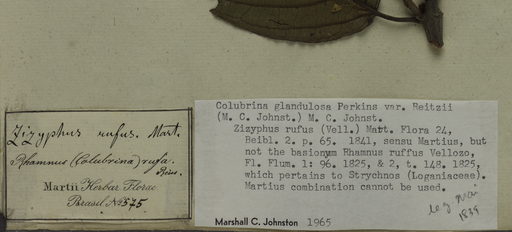 Zizyphus rufus. Mart.
Rhamnus (Colubrina) rufa.
Martii Herbar. Florae
Brasil. No 575
Colubrina glandulosa Perkins var. Reitzii
(M. C. Johnst.) M. C. Johnst.
Zizyphus rufus (Vell.) Matt. Flora 24,
Beibl. 2. p. 65. 1841, sensu Martius, but
not the basionym Rhamnus ruffus Vellozo,
Fl. Flum. 1: 96. 1825, & 2, t. 148. 1825,
which pertains to Strychnos (Loganiaceae).
Martius combination cannot be used.
Marshall C. Johnston 1965
leg
1839